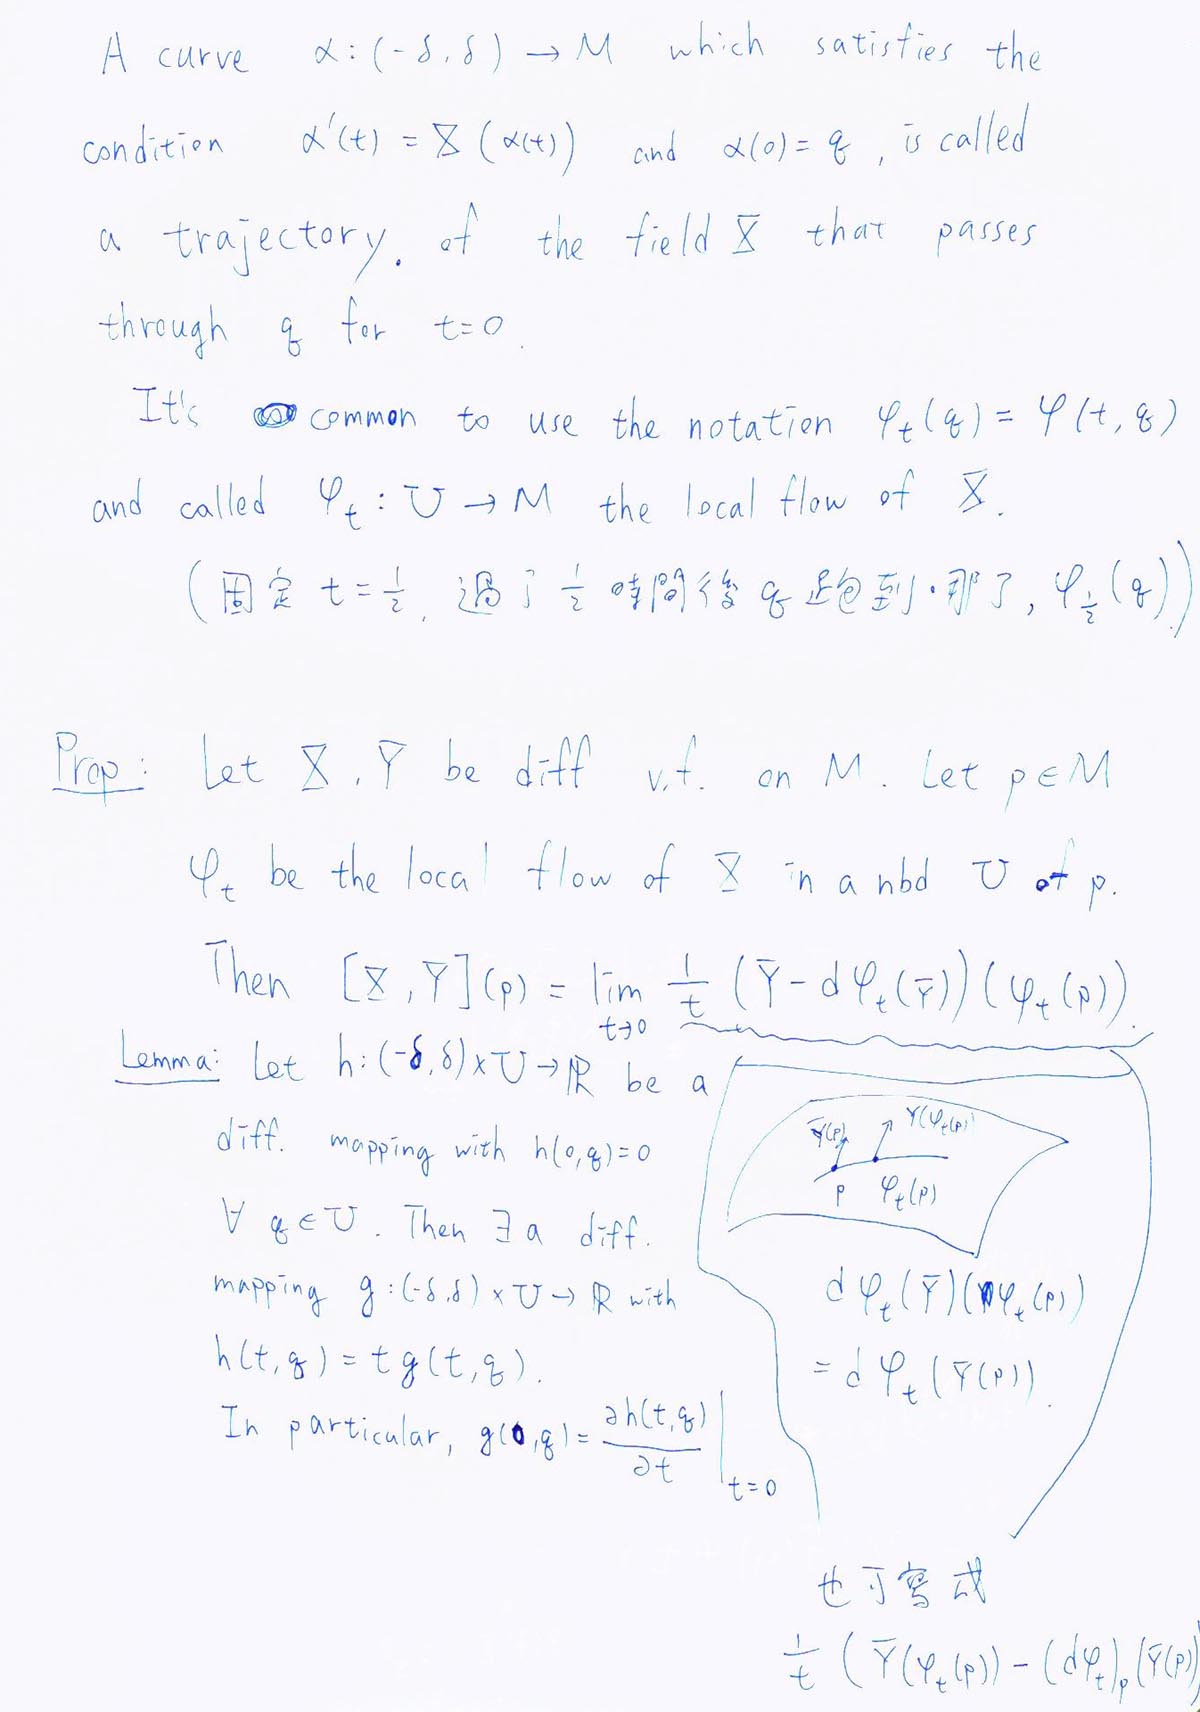 A curve α:(-δ,δ) → M which satisfies the
condition α'(t) = X(α(t)) and α(0)=q, is called
a trajectory. of the field X that passes
through q for t=0.
It's common to use the notation φ_t(q) = φ(t,q)
and called φ_t : U → M the local flow of X.
(固定 t=½, 過了 ½ 時間後 q 跑到.那了, φ_½(q))
Prop: Let X, Y be diff v.f. on M. Let p∈M
φ_t be the local flow of X in a nbd U of p.
Then [X,Y](p) = lim_{t→0} 1/t (Y - dφ_t(Y))(φ_t(p)).
Lemma: Let h:(-δ,δ)×U→ℝ be a
diff. mapping with h(0,q)=0
∀ q∈U. Then ∃ a diff.
mapping g:(-δ,δ)×U→ℝ with
h(t,q) = t g(t,q).
In particular, g(0,q) = ∂h(t,q)/∂t |_{t=0}
Y(p) Y(φ_t(p))
p φ_t(p)
dφ_t(Y)(φ_t(p))
= dφ_t(Y(p)).
也可寫成
1/t (Y(φ_t(p)) - (dφ_t)_p(Y(p))